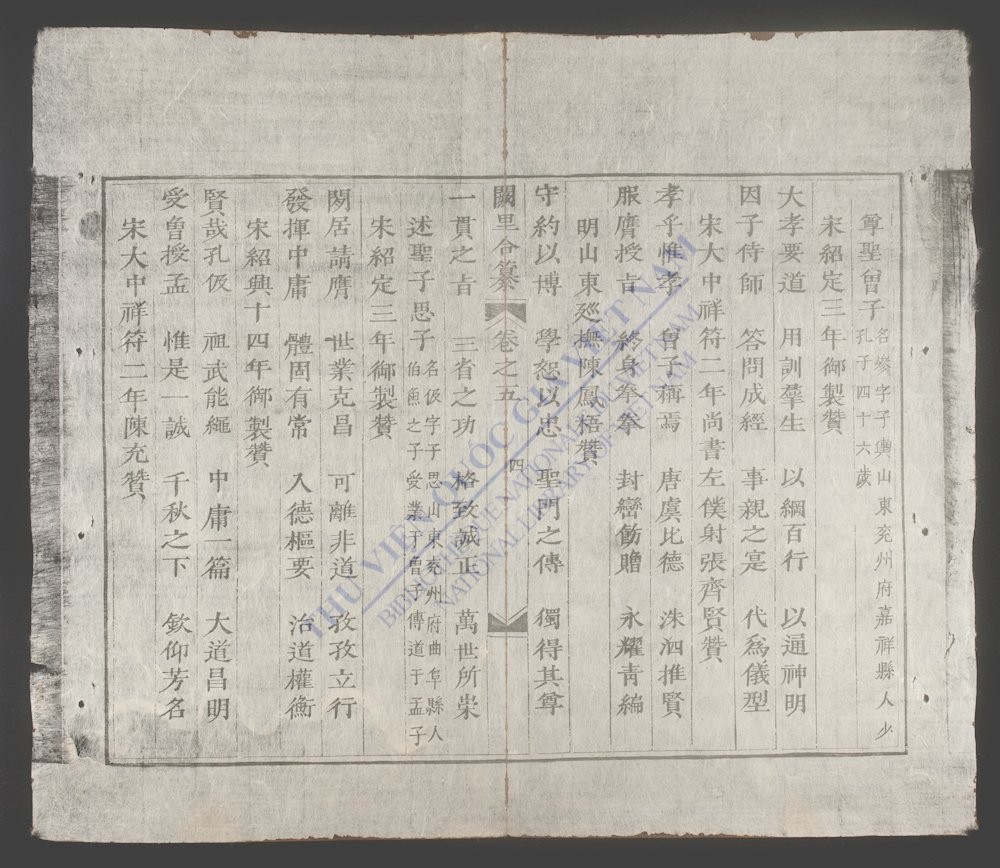 尊聖曾子名參字子輿山東兖州府嘉祥縣人少
孔子四十六歲
宋紹定三年御製贊
大孝要道 用訓羣生 以綱百行 以通神明
因子侍師 答問成經 事親之寔 代爲儀型
宋大中祥符二年尚書左僕射張齊賢贊
孝乎惟孝 曾子稱焉 唐虞比德 洙泗推賢
服膺授㫖 終身拳拳 封巒飭贈 永耀青編
明山東廵撫陳鳳梧贊
守約以博 學恕以忠 聖門之傳 獨得其尊
闕里合纂 卷之五 四
一貫之㫖 三省之功 格致誠正 萬世所崇
述聖子思子名伋字子思山東兖州府曲阜縣人
伯魚之子受業于曾子傳道于孟子
宋紹定三年御製贊
閑居請膺 世業克昌 可離非道 孜孜立行
發揮中庸 體固有常 入德樞要 治道權衡
宋紹興十四年御製贊
賢哉孔伋 祖武能繩 中庸一篇 大道昌明
受曾授孟 惟是一誠 千秋之下 欽仰芳名
宋大中祥符二年陳充贊
THƯ VIỆN QUỐC GIA VIỆT NAM
BIBLIOTHÈQUE NATIONALE DU VIETNAM
NATIONAL LIBRARY OF VIETNAM